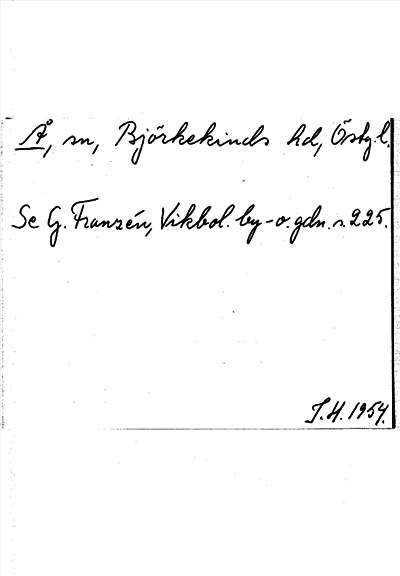 Å, sn, Björkekinds hd, Östgl.
Se G. Franzén, Vikbol. by- o. gdn. s. 225.
J.H. 1954.